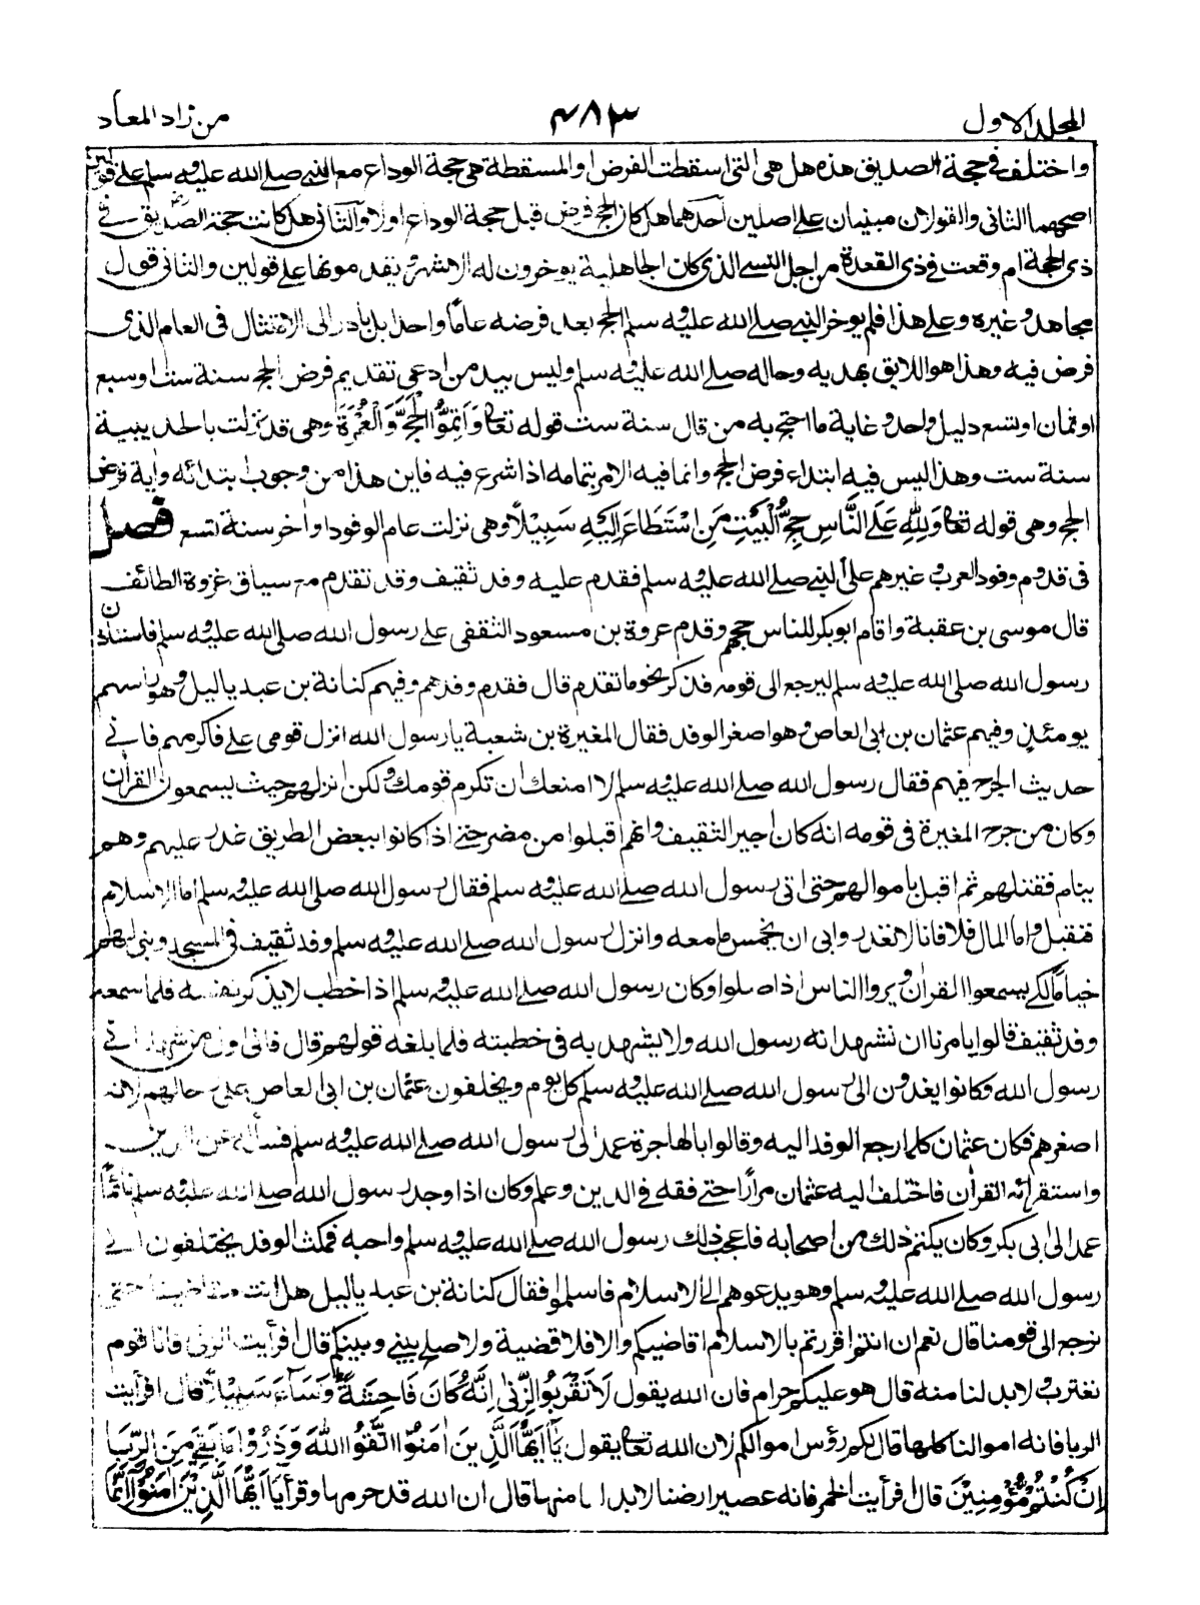 المجلد الاول
٤٨٣
من زاد المعاد
واختلف فی حجة الصدیق هذه هل هی التی اسقطت الفرض او المسقطة هی حجة الوداع مع النبی صلی الله علیه وسلم علی قولین
اصحهما الثانی والقولان مبنیان علی اصلین احدهما هل کان الحج فرض قبل حجة الوداع اولا والثانی هل کانت حجة الصدیق فی
ذی الحجة ام وقعت فی ذی القعدة من اجل النسی الذی کان الجاهلیة یوخرون له الاشهر ویقدمونها علی قولین والثانی قول
مجاهد وغیره وعلی هذا فلم یوخر النبی صلی الله علیه وسلم الحج بعد فرضه عاما واحدا بل بادر الی الامتثال فی العام الذی
فرض فیه وهذا هو اللایق بهدیه وحاله صلی الله علیه وسلم ولیس بید من ادعی تقدیم فرض الحج سنة ست او سبع
او ثمان او تسع دلیل واحد وغایة ما احتج به من قال سنة ست قوله تعالی وَاَتِمُّوا الْحَجَّ وَالْعُمْرَةَ وهی قد نزلت بالحدیبیة
سنة ست وهذا لیس فیه ابتداء فرض الحج وانما فیه الامر بتمامه اذا شرع فیه فاین هذا من وجوب ابتدائه وایة فرض
الحج وهی قوله تعالی وَلِلّٰهِ عَلَی النَّاسِ حِجُّ الْبَیْتِ مَنِ اسْتَطَاعَ اِلَیْهِ سَبِیْلًا وهی نزلت عام الوفود اواخر سنة تسع فصل
فی قدوم وفود العرب وغیرهم علی النبی صلی الله علیه وسلم فقدم علیه وفد ثقیف وقد تقدم مع سیاق غزوة الطائف
قال موسی بن عقبة واقام ابوبکر للناس حجهم وقدم عروة بن مسعود الثقفی علی رسول الله صلی الله علیه وسلم فاستاذن
رسول الله صلی الله علیه وسلم لیرجع الی قومه فذکر نحو ما تقدم قال فقدم وفدهم وفیهم کنانة بن عبد یالیل وهو راسهم
یومئذ وفیهم عثمان بن ابی العاص وهو اصغر الوفد فقال المغیرة بن شعبة یا رسول الله انزل قومی علی فاکرمهم فانی
حدیث الجرح فیهم فقال رسول الله صلی الله علیه وسلم لا امنعک ان تکرم قومک ولکن انزلهم حیث یسمعون القرآن
وکان من جرح المغیرة فی قومه انه کان اجیر الثقیف وانهم اقبلوا من مضر حتی اذا کانوا ببعض الطریق غدر علیهم وهم
نیام فقتلهم ثم اقبل باموالهم حتی اتی رسول الله صلی الله علیه وسلم فقال رسول الله صلی الله علیه وسلم اما الاسلام
فنقبل واما المال فلا فانا لا نغدر وابی ان یخمس ما معه وانزل رسول الله صلی الله علیه وسلم وفد ثقیف فی المسجد وبنی لهم
خیاما لکی یسمعوا القرآن ویروا الناس اذا صلوا وکان رسول الله صلی الله علیه وسلم اذا خطب لا یذکر نفسه فلما سمعه
وفد ثقیف قالوا یامرنا ان نشهد انه رسول الله ولا یشهد به فی خطبته فلما بلغه قولهم قال فانی اول من شهد انی
رسول الله وکانوا یغدون الی رسول الله صلی الله علیه وسلم کل یوم ویخلفون عثمان بن ابی العاص علی رحالهم لانه
اصغرهم فکان عثمان کلما رجع الوفد الیه وقالوا بالهاجرة عمد الی رسول الله صلی الله علیه وسلم فسأله عن الدین
واستقرائه القرآن فاختلف الیه عثمان مرارا حتی فقه فی الدین وعلم وکان اذا وجد رسول الله صلی الله علیه وسلم نائما
عمد الی ابی بکر وکان یکتم ذلک من اصحابه فاعجب ذلک رسول الله صلی الله علیه وسلم واحبه فمکث الوفد یختلفون الی
رسول الله صلی الله علیه وسلم وهو یدعوهم الی الاسلام فاسلموا فقال کنانة بن عبد یالیل هل انت مقاضینا حتی
نرجع الی قومنا قال نعم ان انتم اقررتم بالاسلام اقاضیکم والا فلا قضیة ولا صلح بینی وبینکم قال افرأیت الزنی فانا قوم
نغترب لا بد لنا منه قال هو علیکم حرام فان الله یقول لَا تَقْرَبُوا الزِّنٰی اِنَّهُ کَانَ فَاحِشَةً وَسَآءَ سَبِیْلًا قال افرأیت
الربا فانه اموالنا کلها قال لکم رؤس اموالکم لان الله تعالی یقول یٰٓاَیُّهَا الَّذِیْنَ اٰمَنُوا اتَّقُوا اللّٰهَ وَذَرُوْا مَا بَقِیَ مِنَ الرِّبَا
اِنْ کُنْتُمْ مُّؤْمِنِیْنَ قال افرأیت الخمر فانه عصیر ارضنا لا بد لنا منها قال ان الله قد حرمها وقرأ یٰٓاَیُّهَا الَّذِیْنَ اٰمَنُوْٓا اِنَّمَا